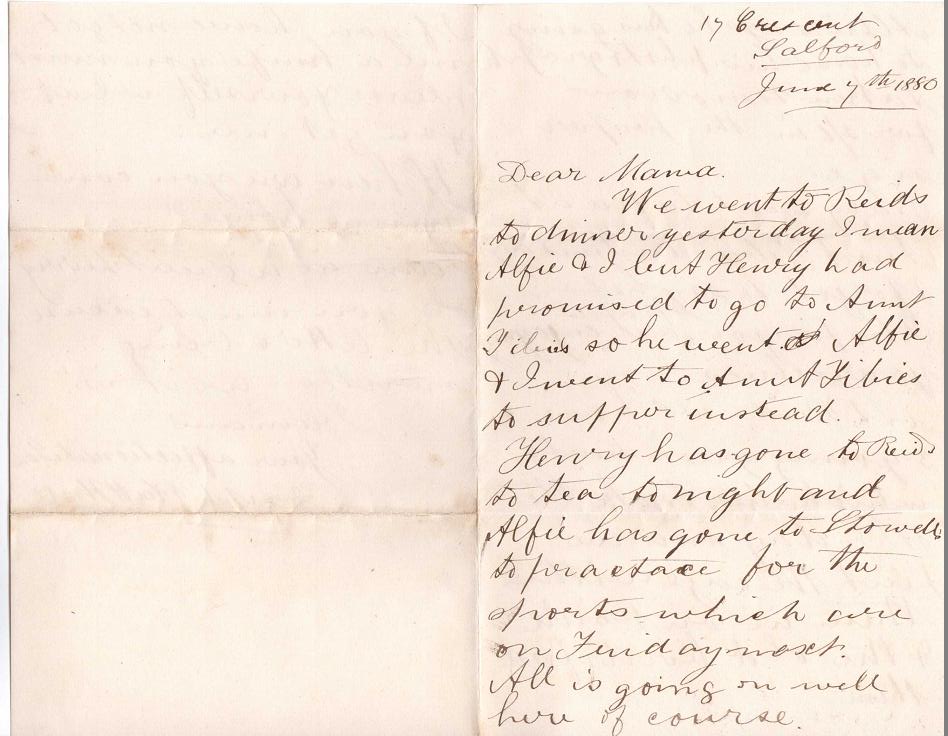 17 Crescent
Salford
June 7th 1880
Dear Mama.
We went to Reids
to dinner yesterday I mean
Alfie & I but Henry had
promised to go to Aunt
Tibies so he went & Alfie
& I went to Aunt Tibies
to supper instead.
Henry has gone to Reids
to tea tonight and
Alfie has gone to Stowells
to practace for the
sports which are
on Friday next.
All is going on well
here of course.